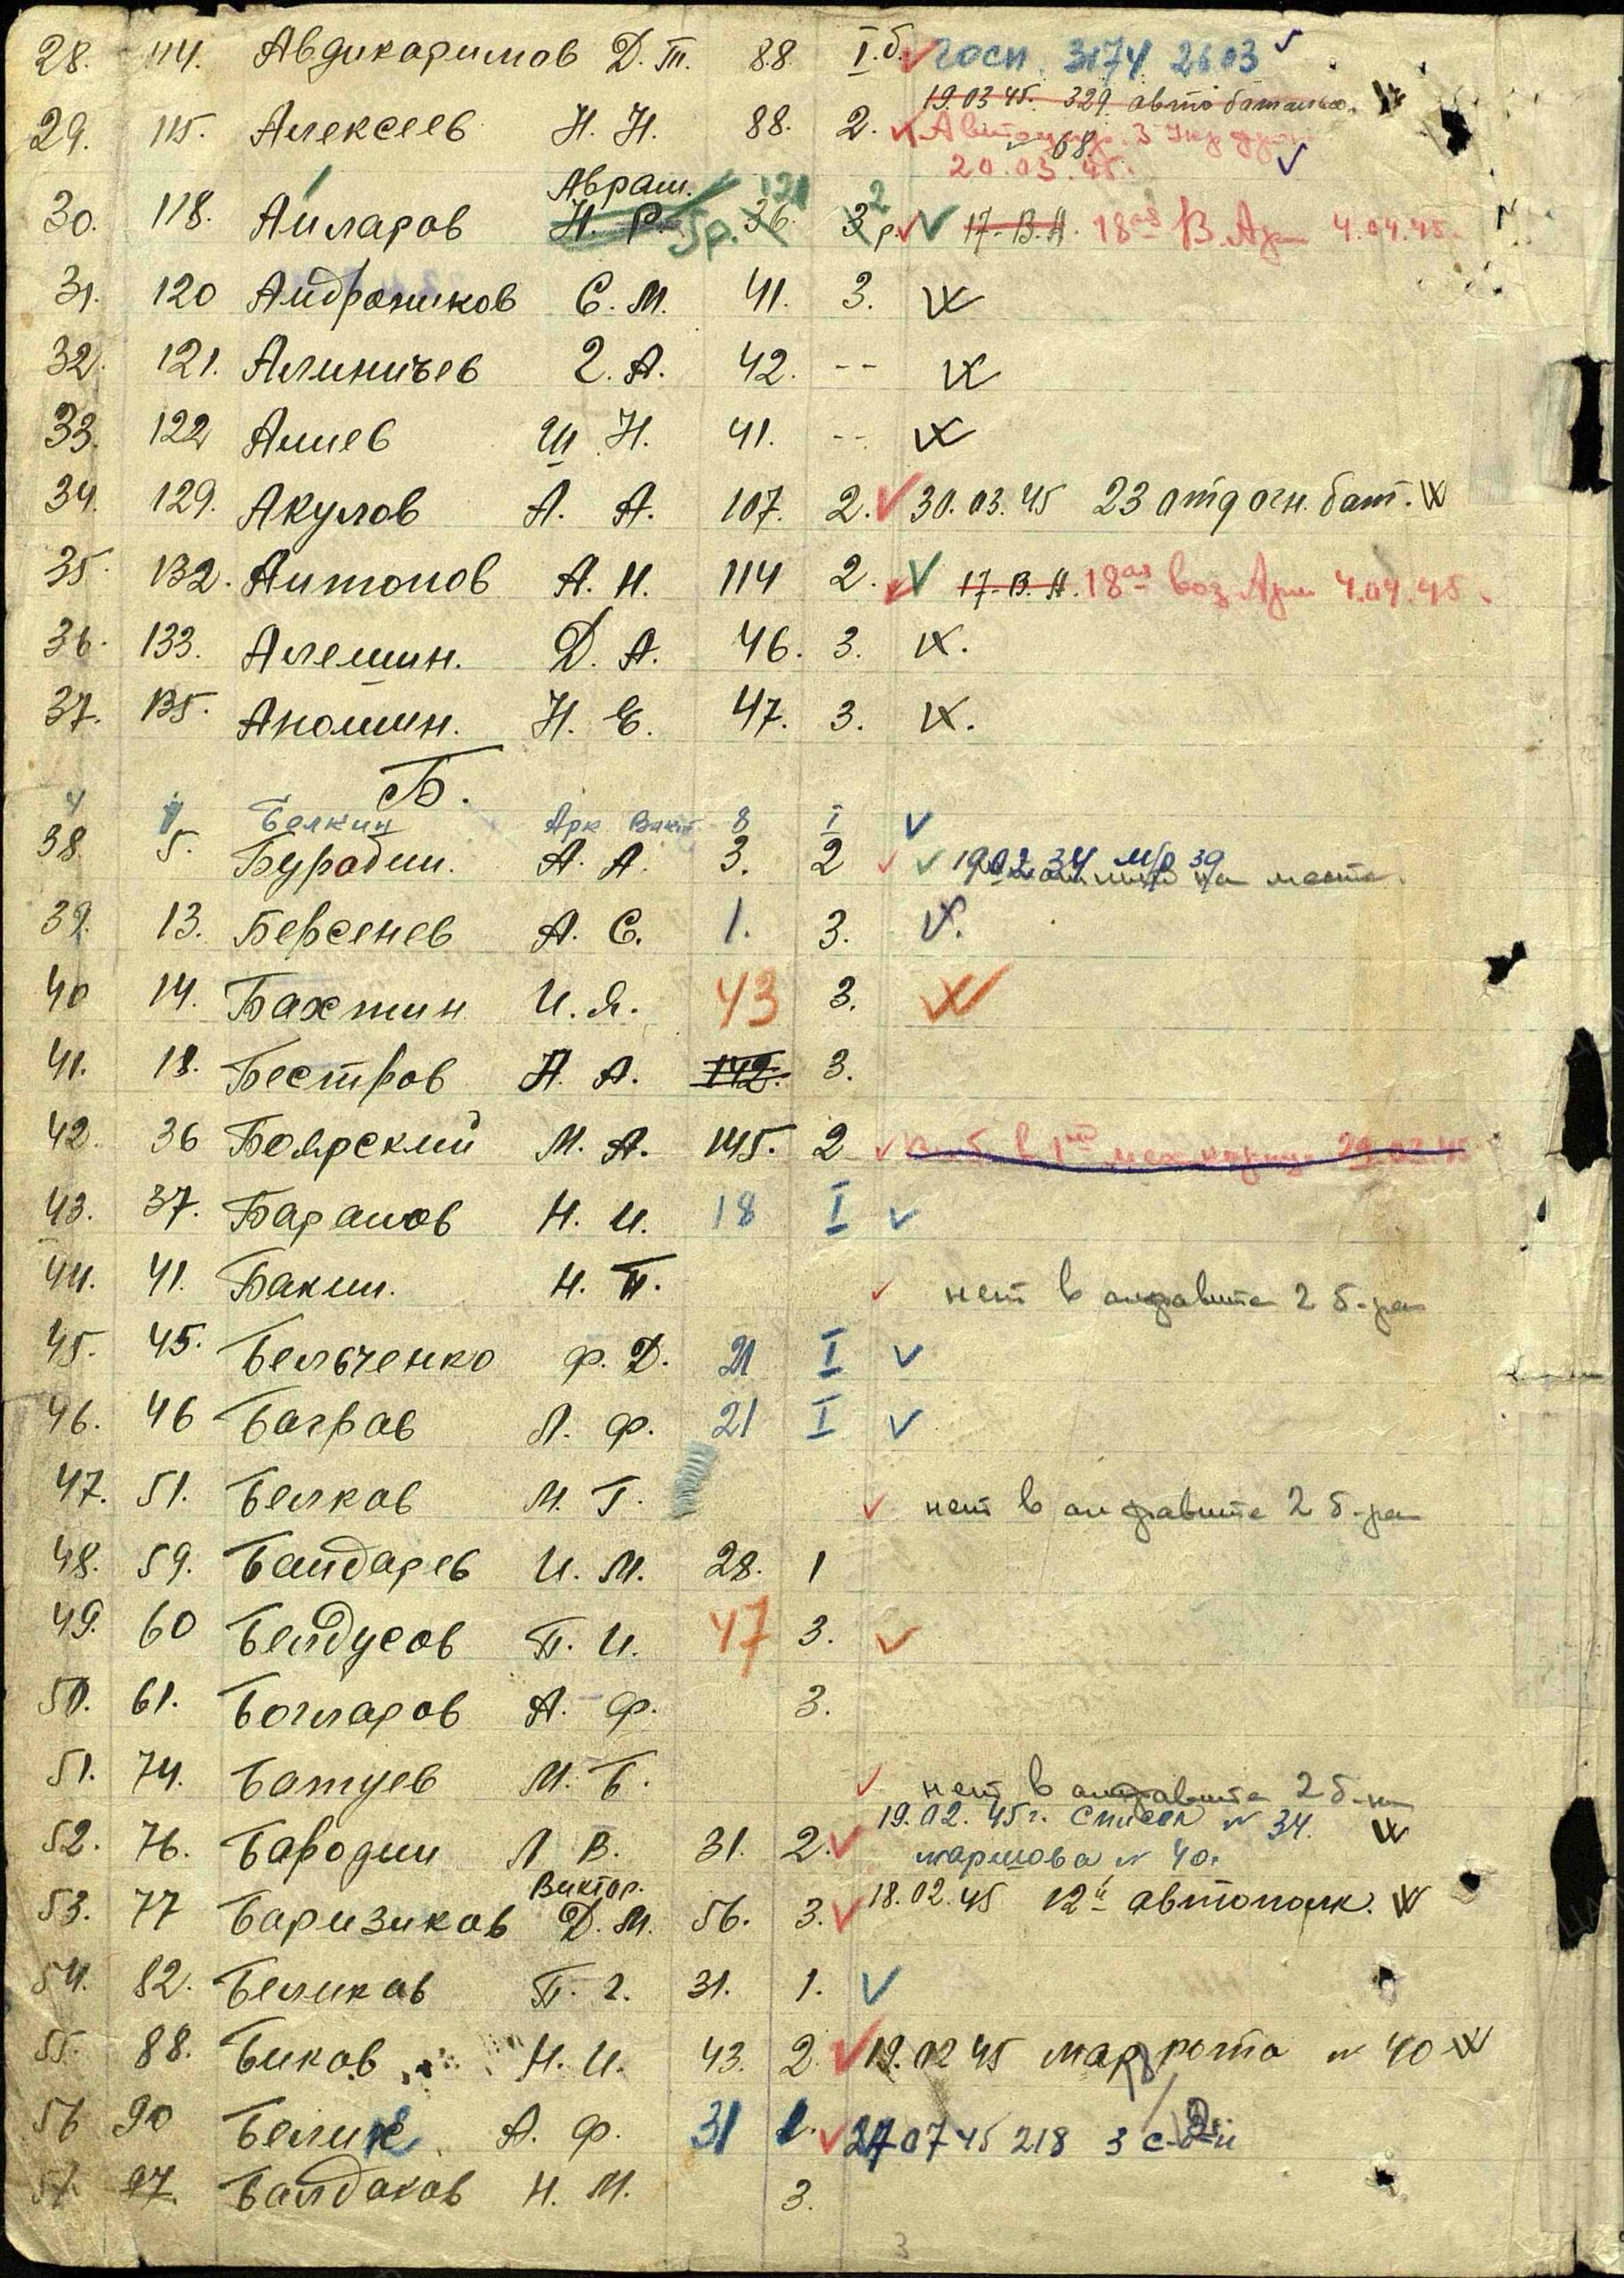 28. 114. Авдикаримов Д. Т. 88. I.б. Госп. 3174 26 03
19.03.45. 329 авто батальон.
29. 115. Алексеев Н. Н. 88. 2.
20.03.45.
Авраш. 121 2
30. 118. Аиларов Н. Р. 36. 3 р. 17. В. А. 18ая В. Арм 4.04.45.
31. 120 Андроников С. М. 41. 3.
32. 121. Алиничев Г. А. 42. --
33. 122 Алиев Ш Н. 41. --
34. 129. Акулов А. А. 107. 2. 30.03.45 23 отд огн. бат.
35. 132. Антонов А. Н. 114 2. 17. В. А. 18ая воз. Арм 4.04.45.
36. 133. Алешин. Д. А. 46. 3.
37. 135. Аношин. Н. Е. 47. 3.
Б.
Белкин Арк Викт 8 I
38. 5. Буробин. А. А. 3. 2 19.02 34 м/р 39
на месте.
39. 13. Берсенев А. С. 1. 3.
40 14. Бахтин И. Я. 43 3.
41. 18. Бестров А. А. 142. 3.
42. 36 Боярский М. А. 145. 2 29.03.45
43. 37. Баранов Н. И. 18 I
44. 41. Бакин. Н. П. нет в алфавите 2 б-на
45. 45. Бельченко Ф. Д. 21 I
46. 46 Багров Л. Ф. 21 I
47. 51. Белков М. Г. нет в алфавите 2 б-на
48. 59. Бандарев И. М. 28. 1
49. 60 Белдусов П. И. 47 3.
50. 61. Богларов А. Ф. 3.
51. 74. Батуев М. Б. нет в алфавите 2 б-на
19.02.45г. список N 34.
52. 76. Бародин Л В. 31. 2. маршова N 40.
Виктор.
53. 77 Баризиков Д. М. 56. 3. 18.02.45 12й автополк.
54. 82. Беликов П. Г. 31. 1.
55. 88. Биков Н. И. 43. 2. 19.02 45 мар рота N 40
56 90 Белик А. Ф. 31 1. 27 07 45 218 3
57. 97. Балдаков Н. М. 3.
3